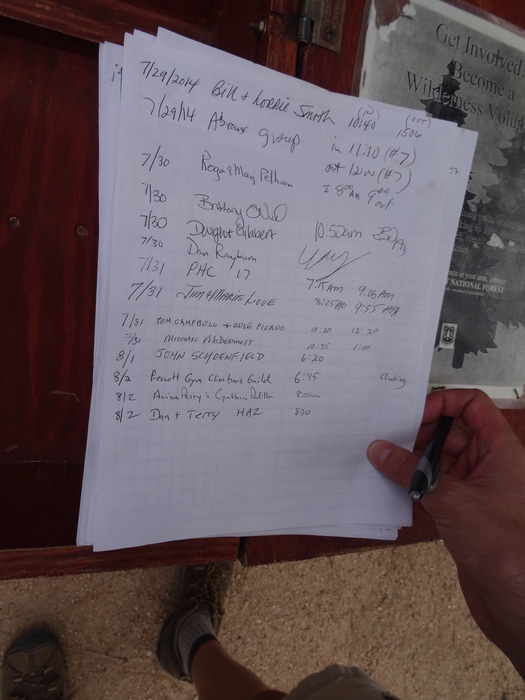 7/29/2014 Bill & Lorrie Smith (IN) 10:40 (OUT) 1506
7/29/14 Abrams group in 11:10 (#7)
out 12:00 (#7)
7/30 Roger & Mary Pelham I 8:00 AM 9:00 out
7/30 Brittany
7/30 Dwight Gilbert 10:50am
7/30 Dan Rayburn
7/31 PHC 17 7:15 AM 9:06 AM
7/31 Jim & Marie Love 8:25 AM 9:55 AM
7/31 TOM CAMPBELL & 10:20 12:20
7/31 MICHAEL McDERMOTT 10:35 1:00
8/1 JOHN 6:20
8/2 Prescott Gym Climbers Guild 6:45 Climbing
8/2 Perry & Cynthia 8:00am
8/2 Dan + Terry HAZ 830
Get Involved
Become a
Wilderness Volu
NATIONAL FOREST